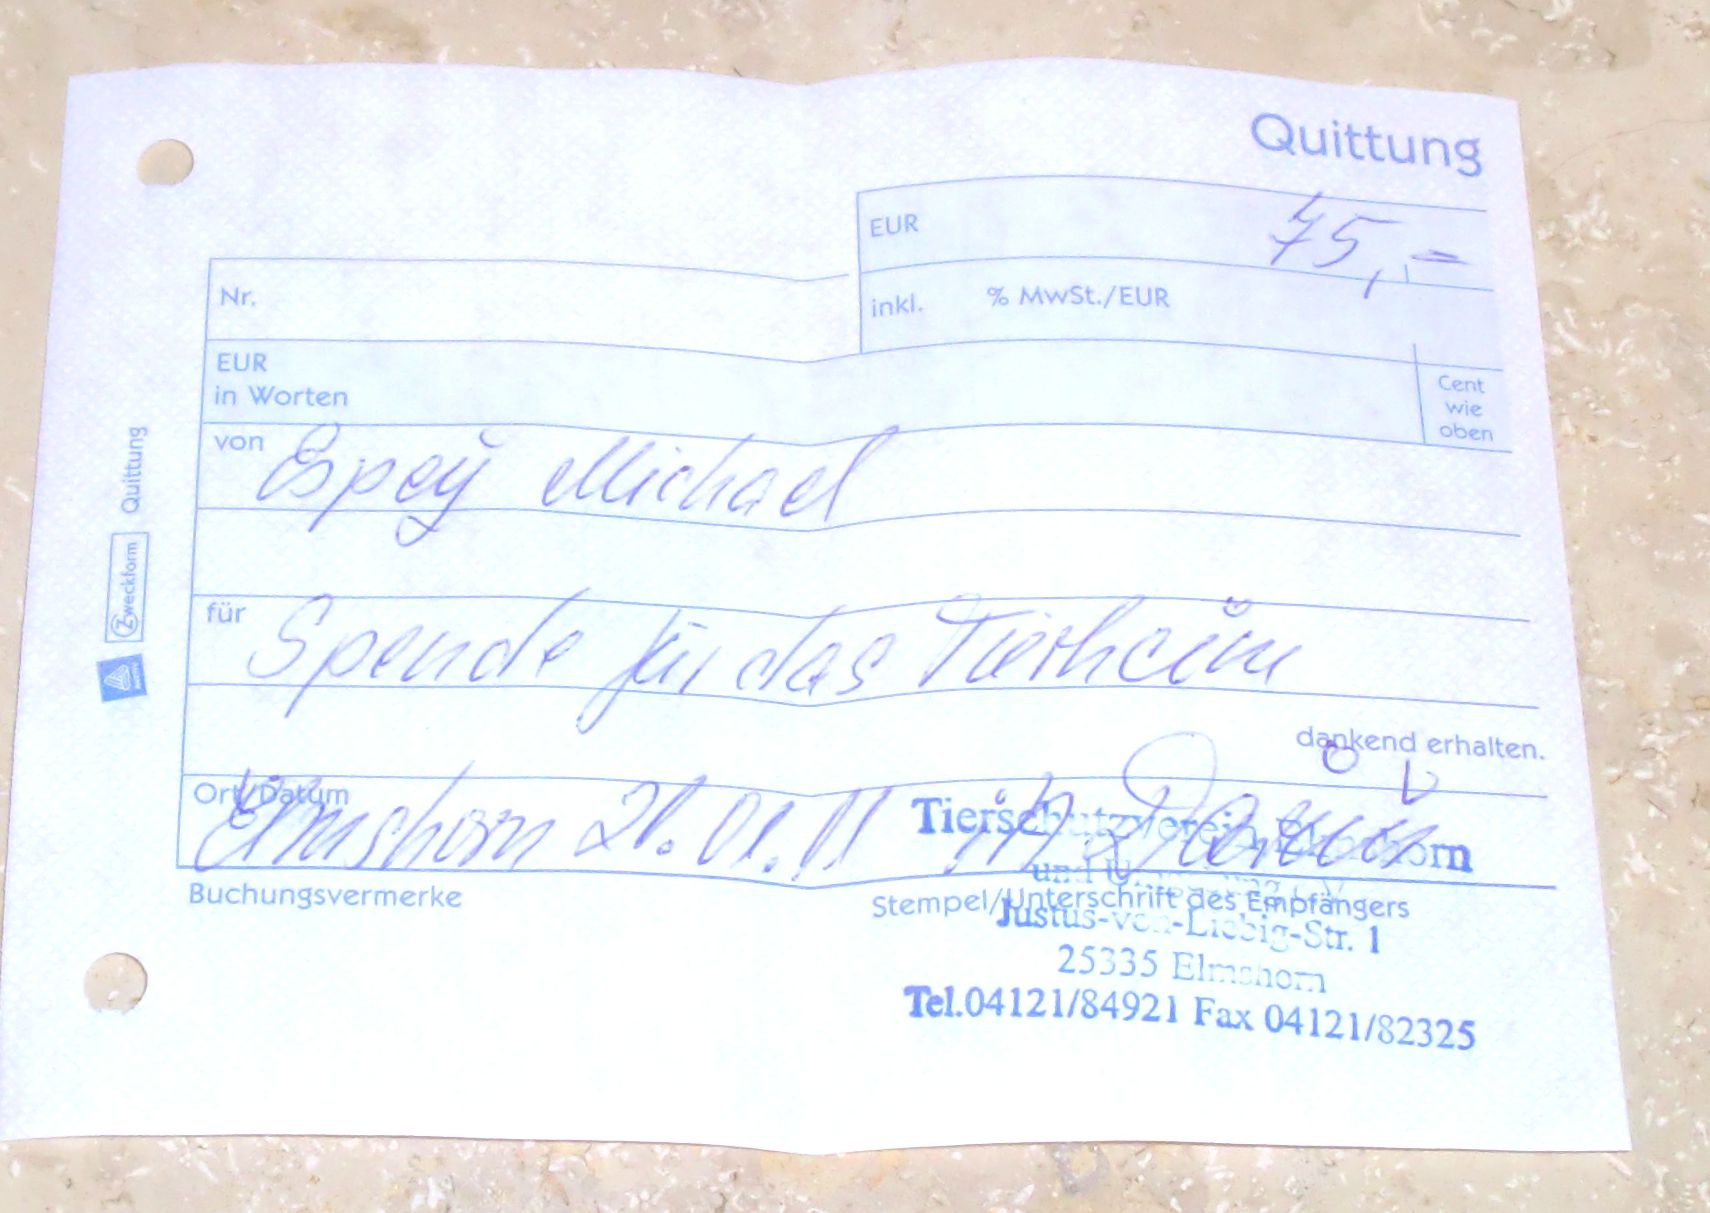 Quittung
EUR 75,-
Nr.
inkl. % MwSt./EUR
EUR
in Worten
Cent
wie
oben
von Espey Michael
für Spende für das Tierheim
dankend erhalten.
Ort/Datum
Elmshorn 21.01.11
Tierschutzverein Elmshorn
und
Buchungsvermerke
Stempel/Unterschrift des Empfängers
Justus-von-Liebig-Str. 1
25335 Elmshorn
Tel.04121/84921 Fax 04121/82325
Zweckform Quittung